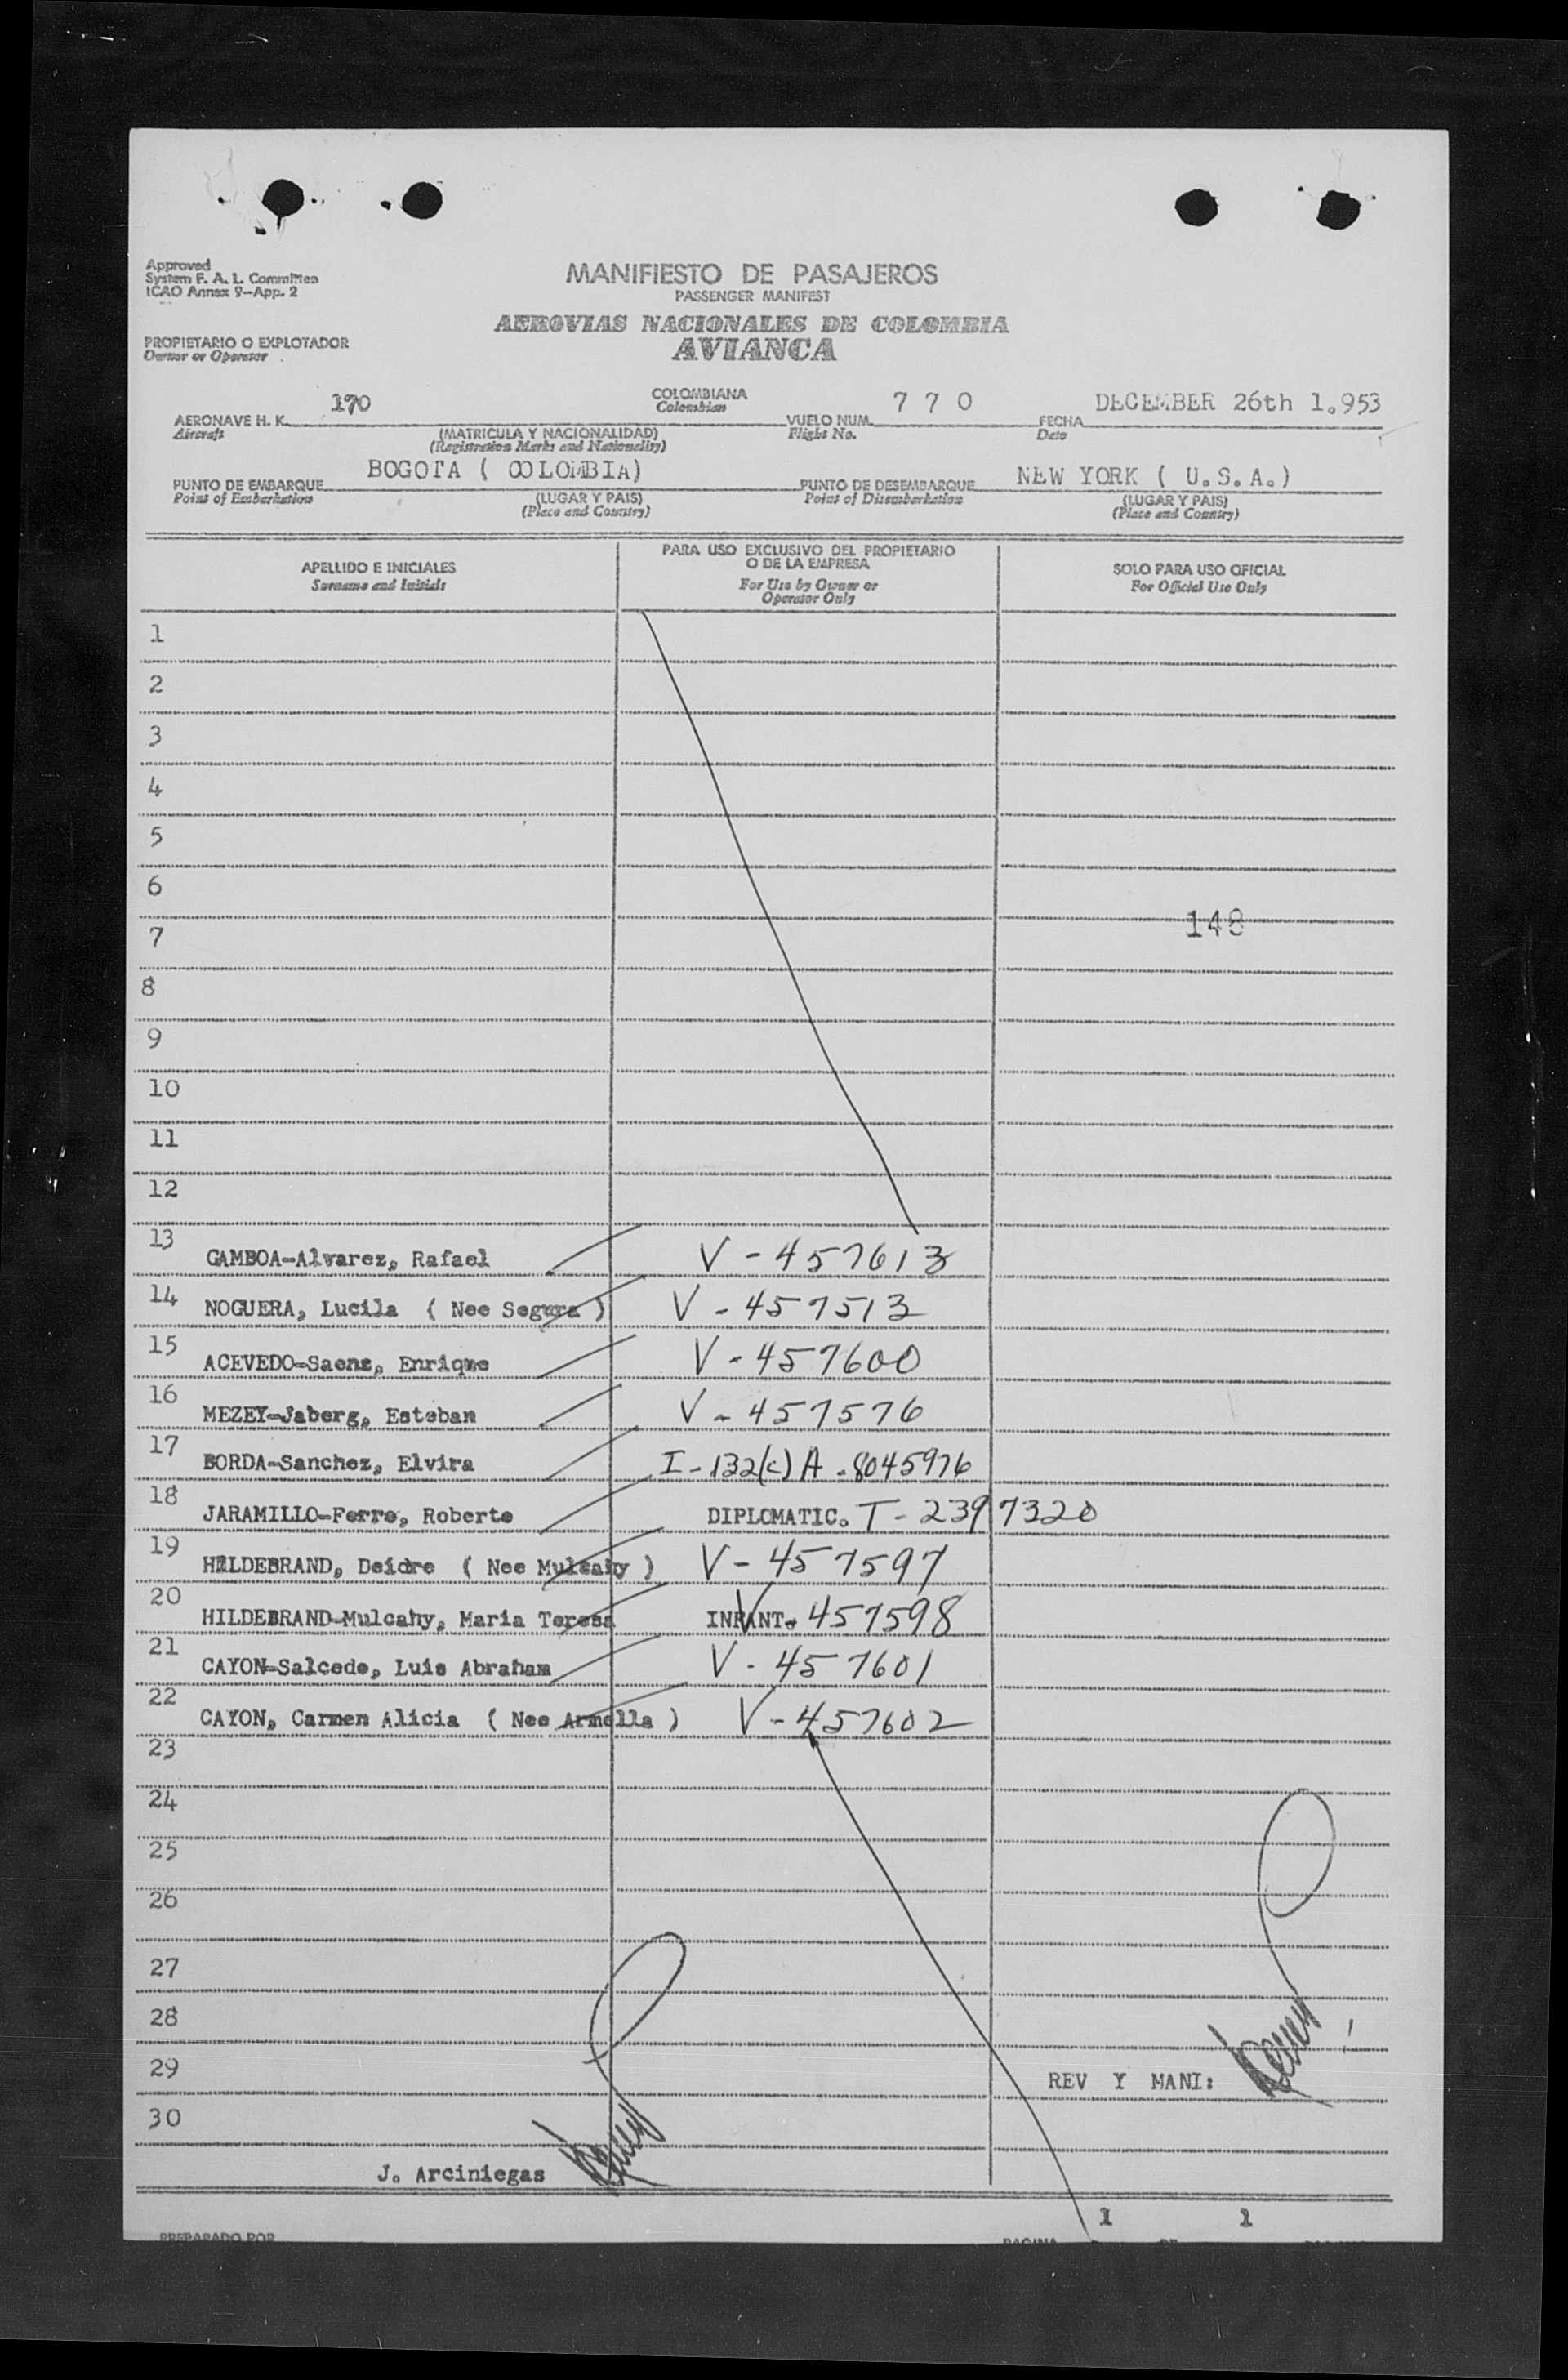 Approved
System F. A. L. Committee
ICAO Annex 9-App. 2
MANIFIESTO DE PASAJEROS
PASSENGER MANIFEST
AEROVIAS NACIONALES DE COLOMBIA
AVIANCA
PROPIETARIO O EXPLOTADOR
Owner or Operator
AERONAVE H. K. 170 COLOMBIANA VUELO NUM. 7 7 0 FECHA DECEMBER 26th 1.953
Aircraft Colombian Flight No. Date
(MATRICULA Y NACIONALIDAD)
(Registration Marks and Nationality)
PUNTO DE EMBARQUE BOGOTA ( COLOMBIA) PUNTO DE DESEMBARQUE NEW YORK ( U.S.A.)
Point of Embarkation (LUGAR Y PAIS) Point of Disembarkation (LUGAR Y PAIS)
(Place and Country) (Place and Country)
APELLIDO E INICIALES
Surname and Initials
PARA USO EXCLUSIVO DEL PROPIETARIO
O DE LA EMPRESA
For Use by Owner or
Operator Only
SOLO PARA USO OFICIAL
For Official Use Only
1
2
3
4
5
6
148
7
8
9
10
11
12
13 GAMBOA-Alvarez, Rafael V - 457613
14 NOGUERA, Lucila ( Nee Segura ) V - 457513
15 ACEVEDO-Saenz, Enrique V - 457600
16 MEZEY-Jaberg, Esteban V - 457576
17 BORDA-Sanchez, Elvira I - 132(c) A - 8045976
18 JARAMILLO-Ferro, Roberto DIPLOMATIC. T - 2397320
19 HILDEBRAND, Deidre ( Nee Mulcahy ) V - 457597
20 HILDEBRAND-Mulcahy, Maria Teresa INFANT. V 457598
21 CAYON-Salcedo, Luis Abraham V - 457601
22 CAYON, Carmen Alicia ( Nee Armella ) V - 457602
23
24
25
26
27
28
29
REV Y MANI:
30
J. Arciniegas
1 1
PREPARADO POR PAGINA DE